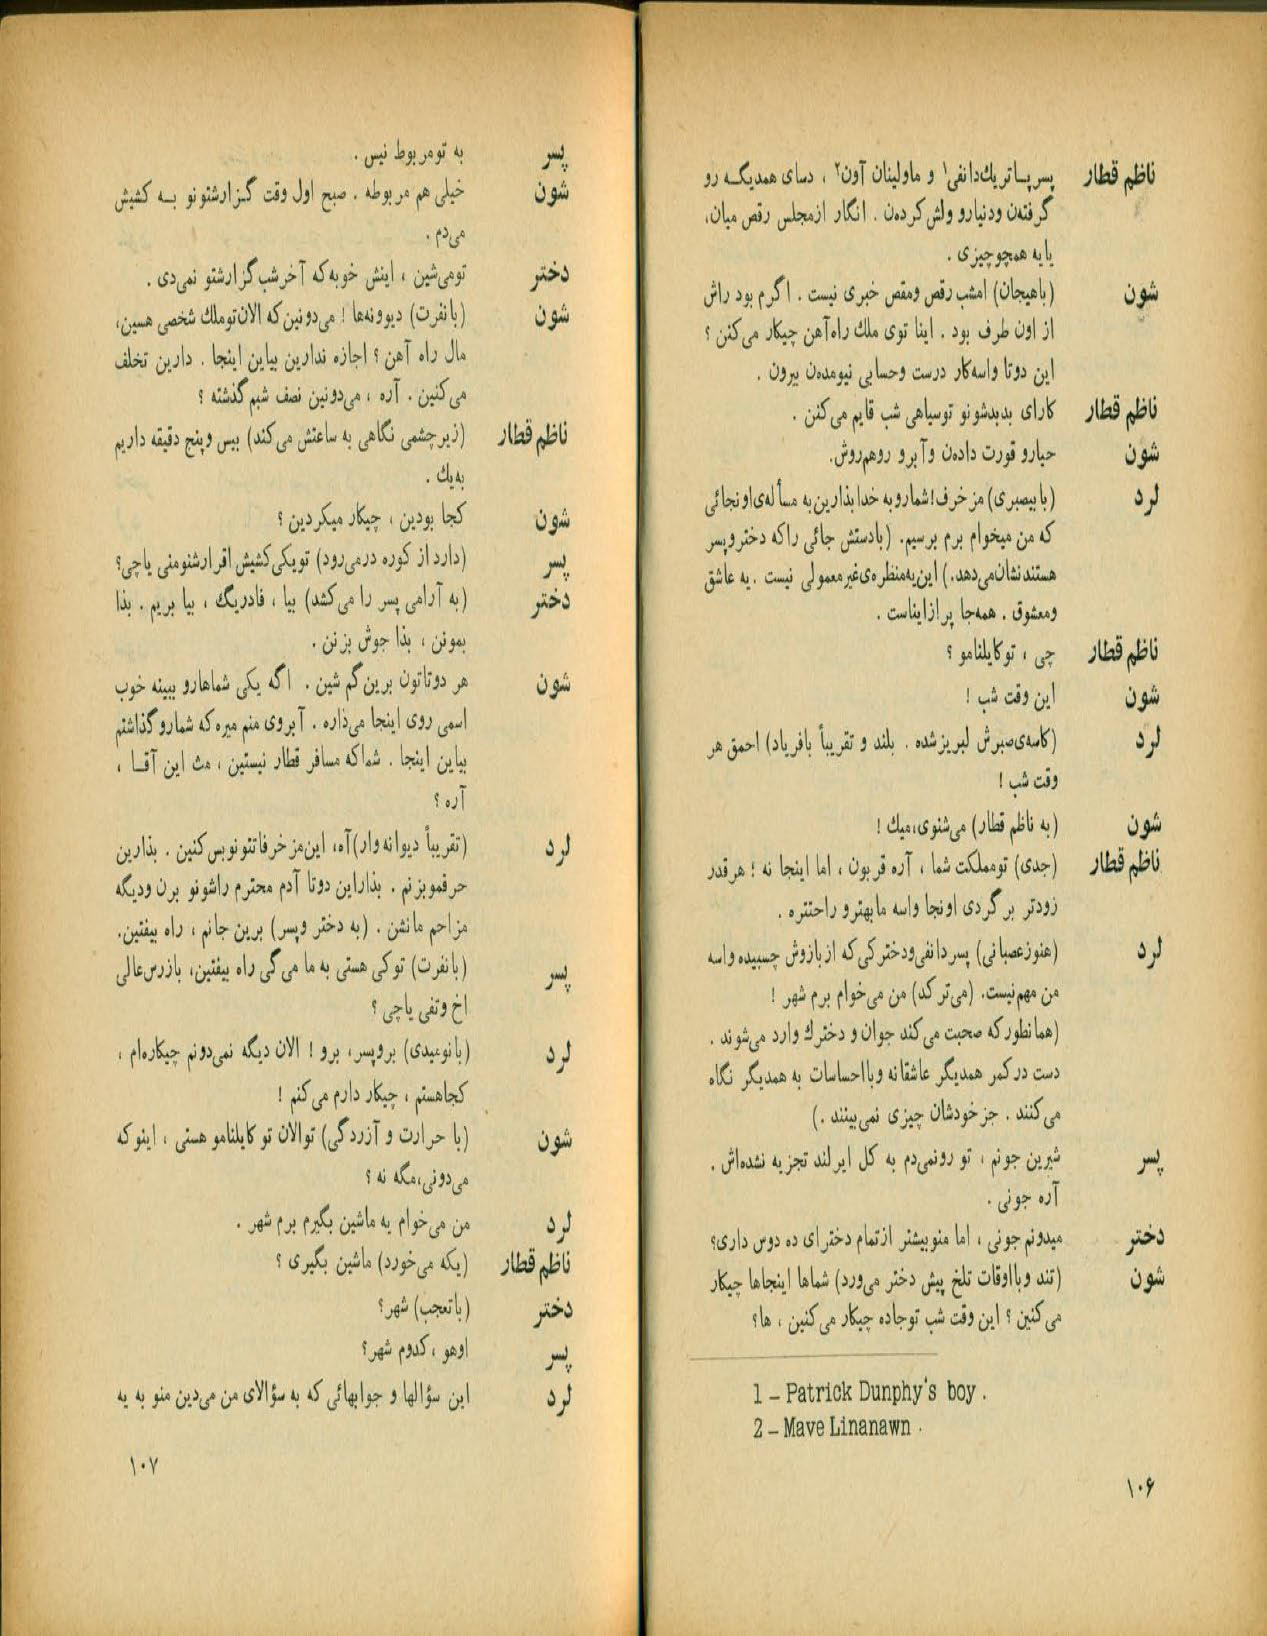 ناظم قطار پسر پـاتریك دانفی۱ و ماولینان آون۲ ، دسای همدیگـه رو
گرفتهن ودنیارو ولش کردهن . انگار ازمجلس رقص میان،
یایه همچو چیزی .
شون (باهیجان) امشب رقص ومقص خبری نیست . اگرم بود راش
از اون طرف بود . اینا توی ملك راه‌آهن چیکار می‌کنن ؟
این دوتا واسه‌کار درست وحسابی نیومده‌ن بیرون .
ناظم قطار کارای بدبدشونو توسیاهی شب قایم می‌کنن .
شون حیارو قورت داده‌ن وآبرو روهم‌روش.
لرد (بابیصبری) مزخرف! شمارو به خدا بذارین به مسأله‌ی اونجائی
که من میخوام برم برسیم. (بادستش جائی را که دختر و پسر
هستند نشان می‌دهد.) این یه منظره‌ی غیر معمولی نیست . یه عاشق
ومعشوق . همه‌جا پر از ایناست .
ناظم قطار چی ، توکایلنامو ؟
شون این وقت شب !
لرد (کاسه‌ی صبرش لبریز شده . بلند و تقریباً بافریاد) احمق هر
وقت شب !
شون (به ناظم قطار) می‌شنوی، میك !
ناظم قطار (جدی) تومملکت شما ، آره قربون ، اما اینجا نه ؛ هر قدر
زودتر بر گردی اونجا واسه ما بهتر و راحتتره .
لرد (هنوز عصبانی) پسر دانفی و دختر کی که از بازوش چسبیده واسه
من مهم نیست. (می‌ترکد) من می‌خوام برم شهر !
(همانطور که صحبت می‌کند جوان و دخترك وارد می‌شوند .
دست در کمر همدیگر عاشقانه وبااحساسات به همدیگر نگاه
می‌کنند . جز خودشان چیزی نمی‌بینند .)
پسر شیرین جونم ، تو رونمی‌دم به کل ایرلند تجزیه نشده‌اش .
آره جونی .
دختر میدونم جونی ، اما منو بیشتر از تمام دخترای ده دوس داری؟
شون (تند وبااوقات تلخ پیش دختر می‌ورد) شماها اینجاها چیکار
می‌کنین ؟ این وقت شب توجاده چیکار می‌کنین ، ها؟
1 – Patrick Dunphy's boy .
2 – Mave Linanawn .
۱۰۶
پسر به تو مربوط نیس .
شون خیلی هم مربوطه . صبح اول وقت گـزارشتونو بـه کشیش
می‌دم .
دختر تو می‌شین ، اینش خوبه که آخر شب گزارشتو نمی‌دی .
شون (بانفرت) دیوونه‌ها ! می‌دونین که الان توملك شخصی هسین،
مال راه آهن ؟ اجازه ندارین بیاین اینجا . دارین تخلف
می‌کنین . آره ، می‌دونین نصف شبم گذشته ؟
ناظم قطار (زیرچشمی نگاهی به ساعتش می‌کند) بیس وپنج دقیقه داریم
به‌یك .
شون کجا بودین ، چیکار میکردین ؟
پسر (دارد از کوره درمی‌رود) تویکی کشیش اقرارشنومنی یاچی؟
دختر (به آرامی پسر را می‌کشد) بیا ، فادریگ ، بیا بریم . بذا
بمونن ، بذا جوش بزنن .
شون هر دوتاتون برین گم شین . اگه یکی شماهارو ببینه خوب
اسمی روی اینجا می‌ذاره . آبروی منم میره که شمارو گذاشتم
بیاین اینجا . شماکه مسافر قطار نیستین ، مث این آقـا ،
آره ؟
لرد (تقریباً دیوانه وار) آه، این‌مزخرفاتتونوبس کنین . بذارین
حرفموبزنم . بذاراین دوتا آدم محترم راشونو برن ودیگه
مزاحم مانشن . (به دختر وپسر) برین جانم ، راه بیفتین.
پسر (بانفرت) توکی هستی به ما می‌گی راه بیفتین، بازرس‌عالی
اخ وتفی یاچی ؟
لرد (بانومیدی) بروپسر، برو ! الان دیگه نمی‌دونم چیکاره‌ام ،
کجاهستم ، چیکار دارم می‌کنم !
شون (با حرارت و آزردگی) توالان تو کایلنامو هستی ، اینو که
می‌دونی، مگه نه ؟
لرد من می‌خوام یه ماشین بگیرم برم شهر .
ناظم قطار (یکه می‌خورد) ماشین بگیری ؟
دختر (باتعجب) شهر؟
پسر اوهو ، کدوم شهر؟
لرد این سؤالها و جوابهائی که به سؤالای من می‌دین منو به یه
۱۰۷